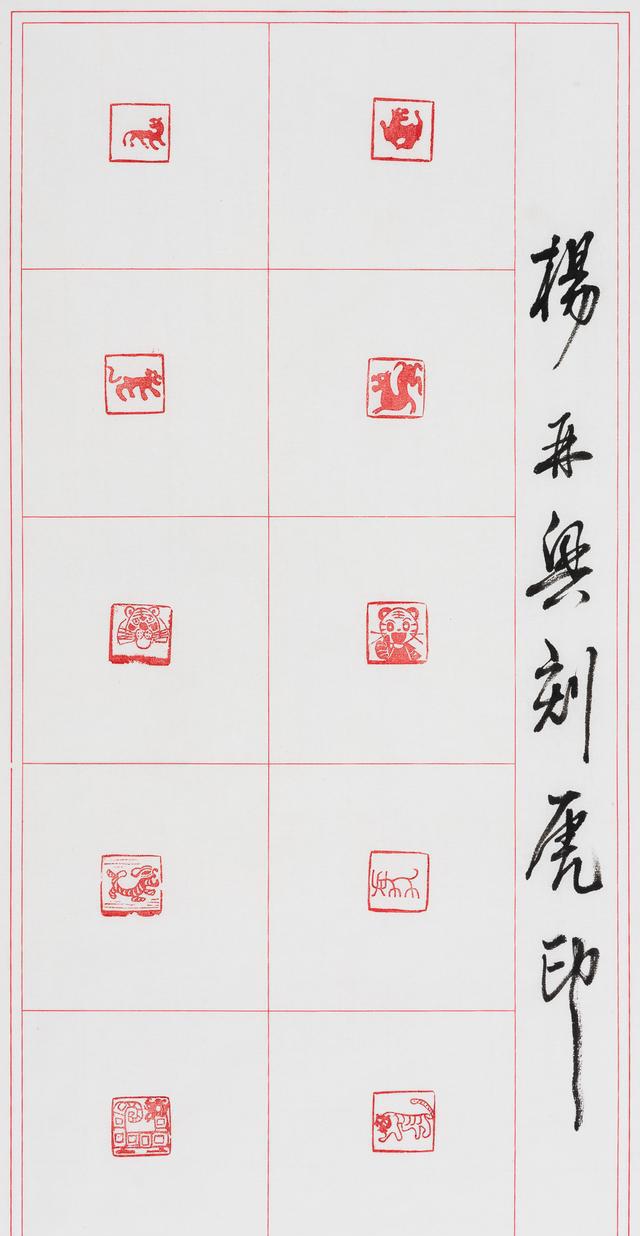 楊再興刻虎印